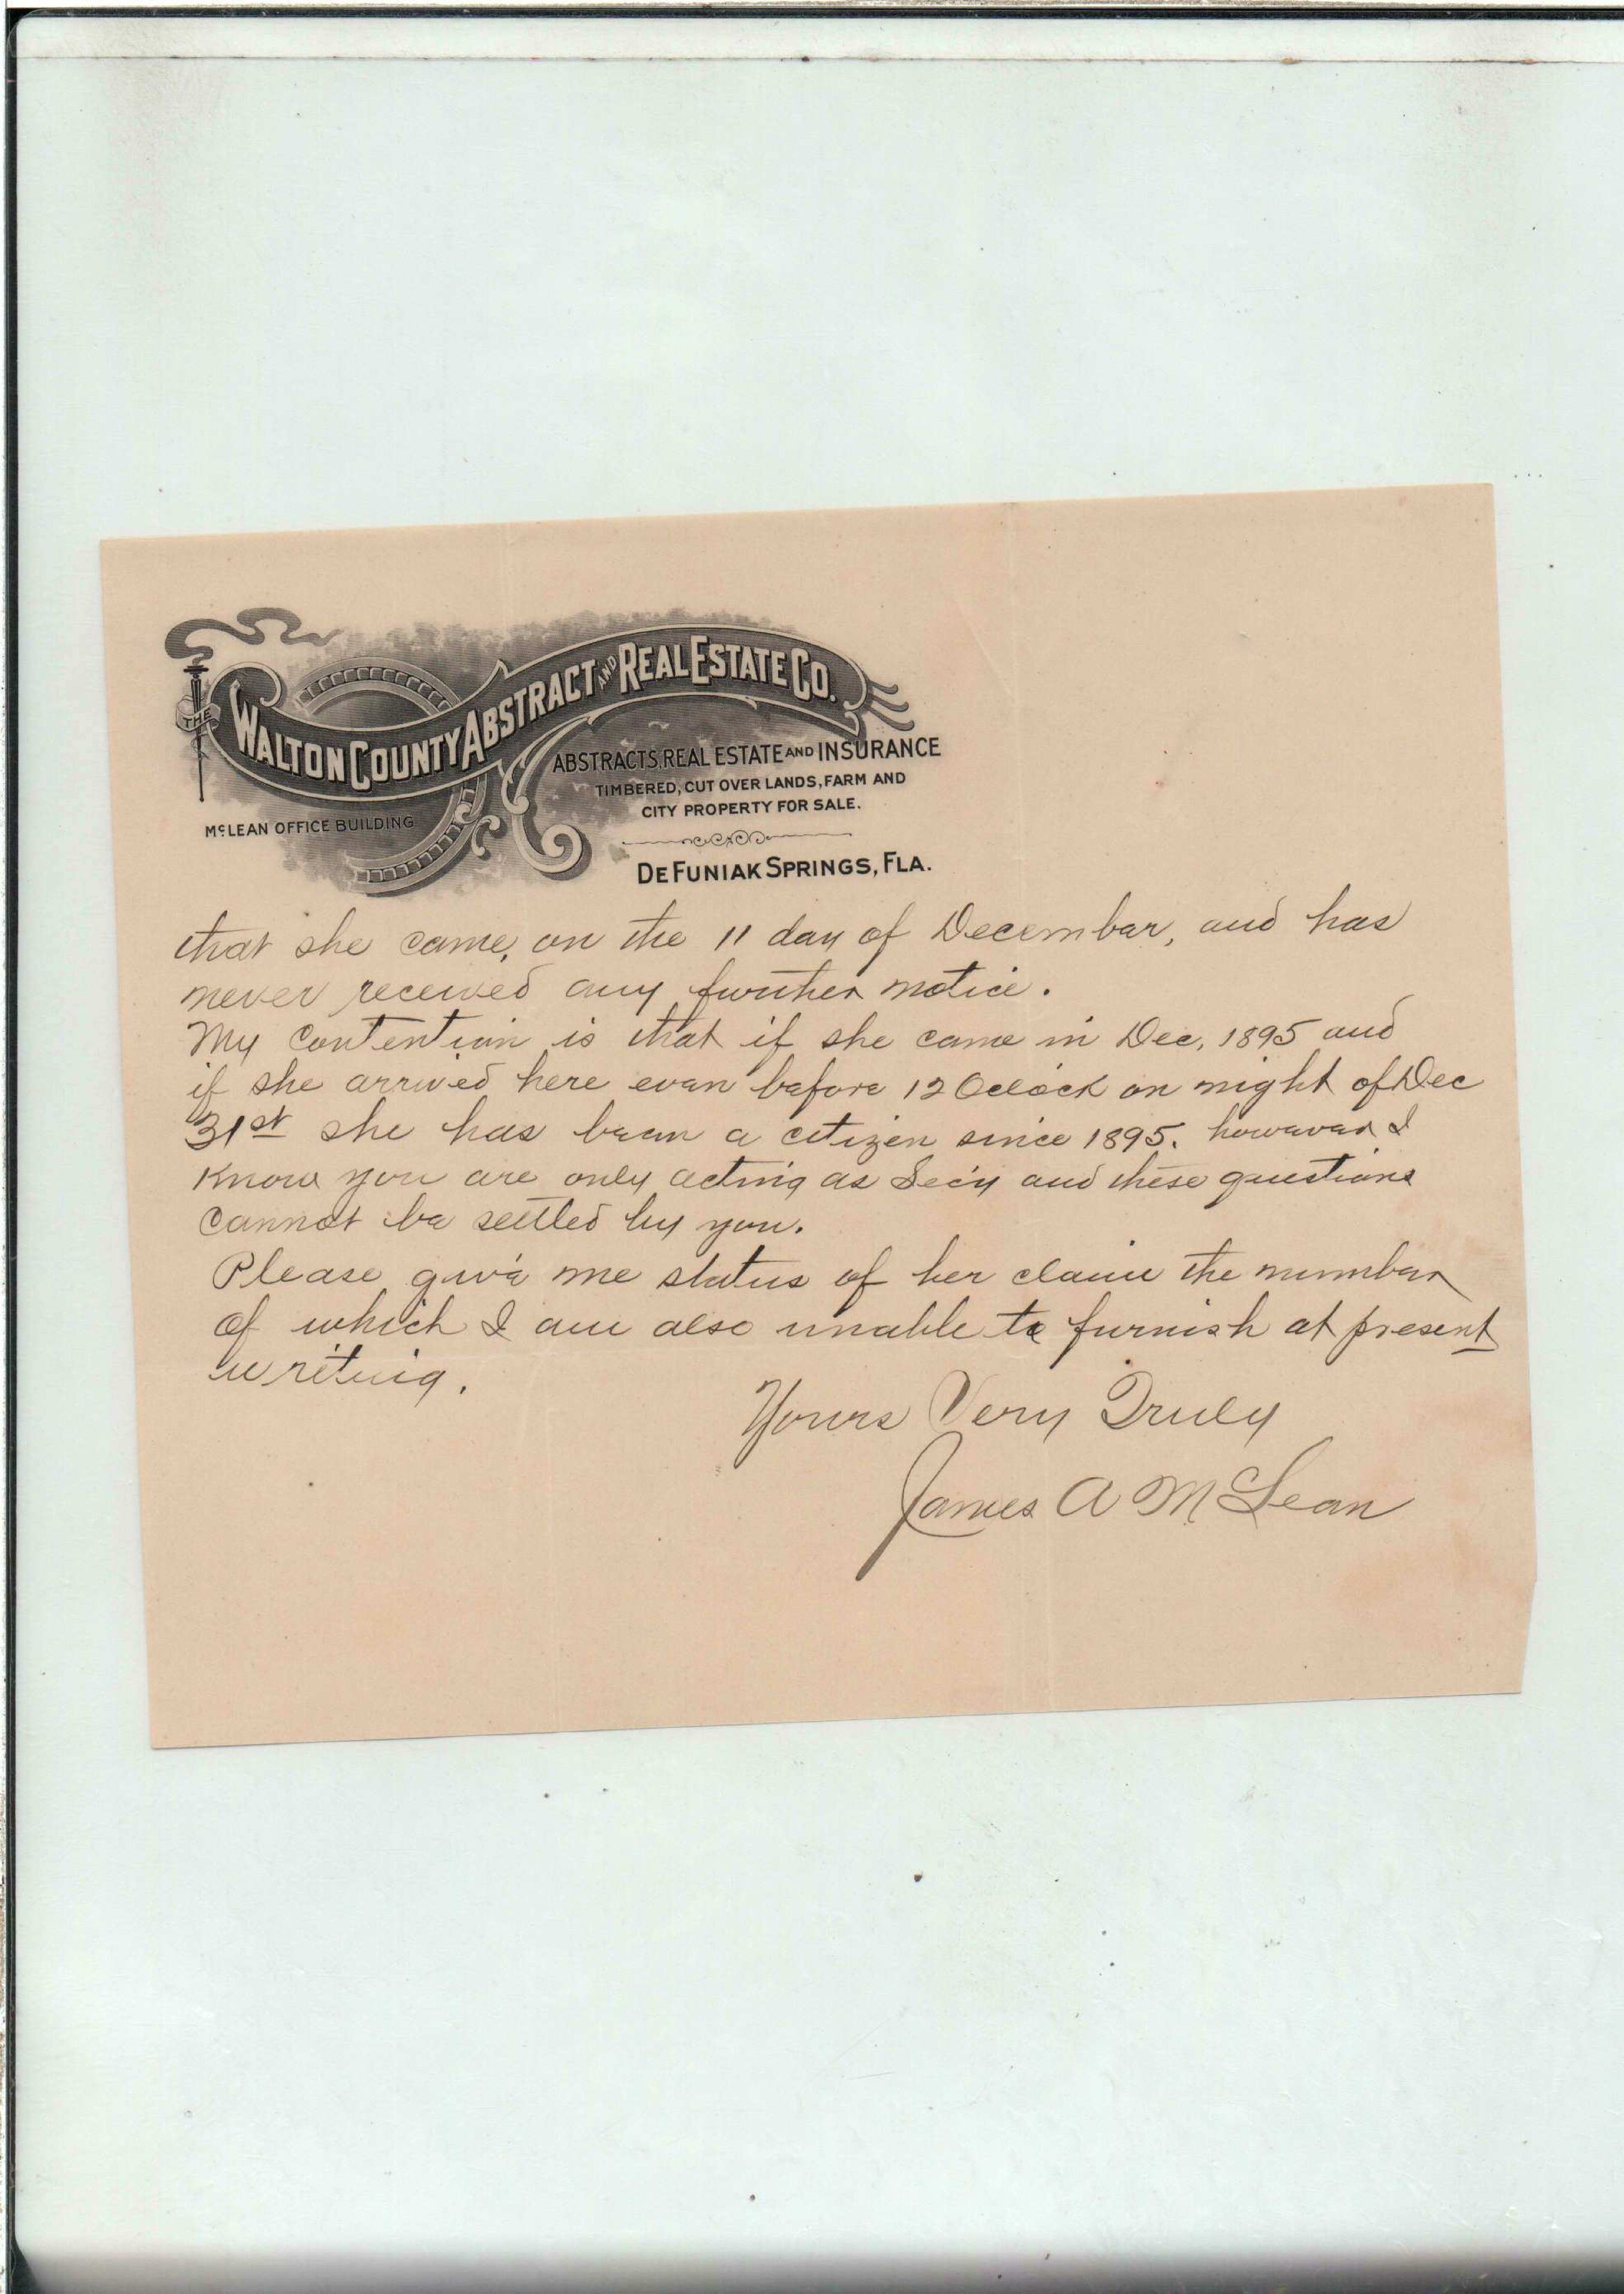 THE WALTON COUNTY ABSTRACT AND REAL ESTATE CO.
ABSTRACTS, REAL ESTATE AND INSURANCE
TIMBERED, CUT OVER LANDS, FARM AND
CITY PROPERTY FOR SALE.
McLEAN OFFICE BUILDING
DEFUNIAK SPRINGS, FLA.
that she came, on the 11 day of December, and has
never received any further notice.
My Contention is that if she came in Dec, 1895 and
if she arrived here even before 12 Oclock on night of Dec
31st she has been a citizen since 1895. however I
Know you are only acting as Secy and these questions
cannot be settled by you.
Please give me status of her claim the number
of which I am also unable to furnish at present
writing.
Yours Very Truly
James A McLean